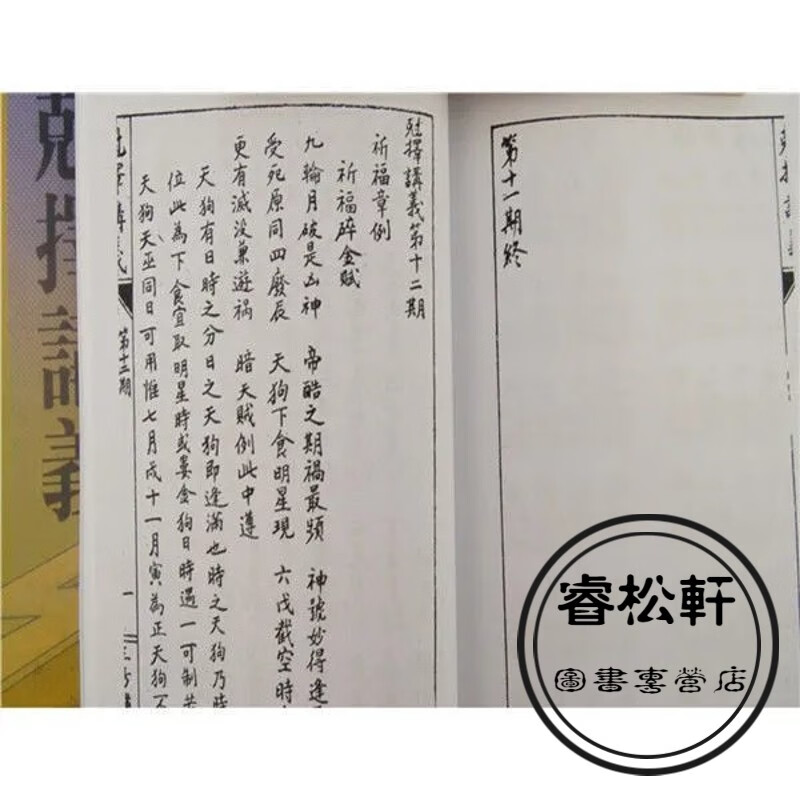 第十一期終
尅擇講義第十二期
祈福章例
祈福碎金賦
九輪月破是凶神　帝酷之期禍最頻　神號妙得逢
受死原同四廢辰　天狗下食明星現　六戊截空時
更有滅没兼遊禍　暗天賊例此中遵
天狗有日時之分日之天狗即逢滿也時之天狗乃時
位此為下食宜取明星時或婁金狗日時遇一可制
天狗天巫同日可用惟七月戌十一月寅為正天狗不
第十二期
一
尅擇講義
睿松軒
圖書專營店